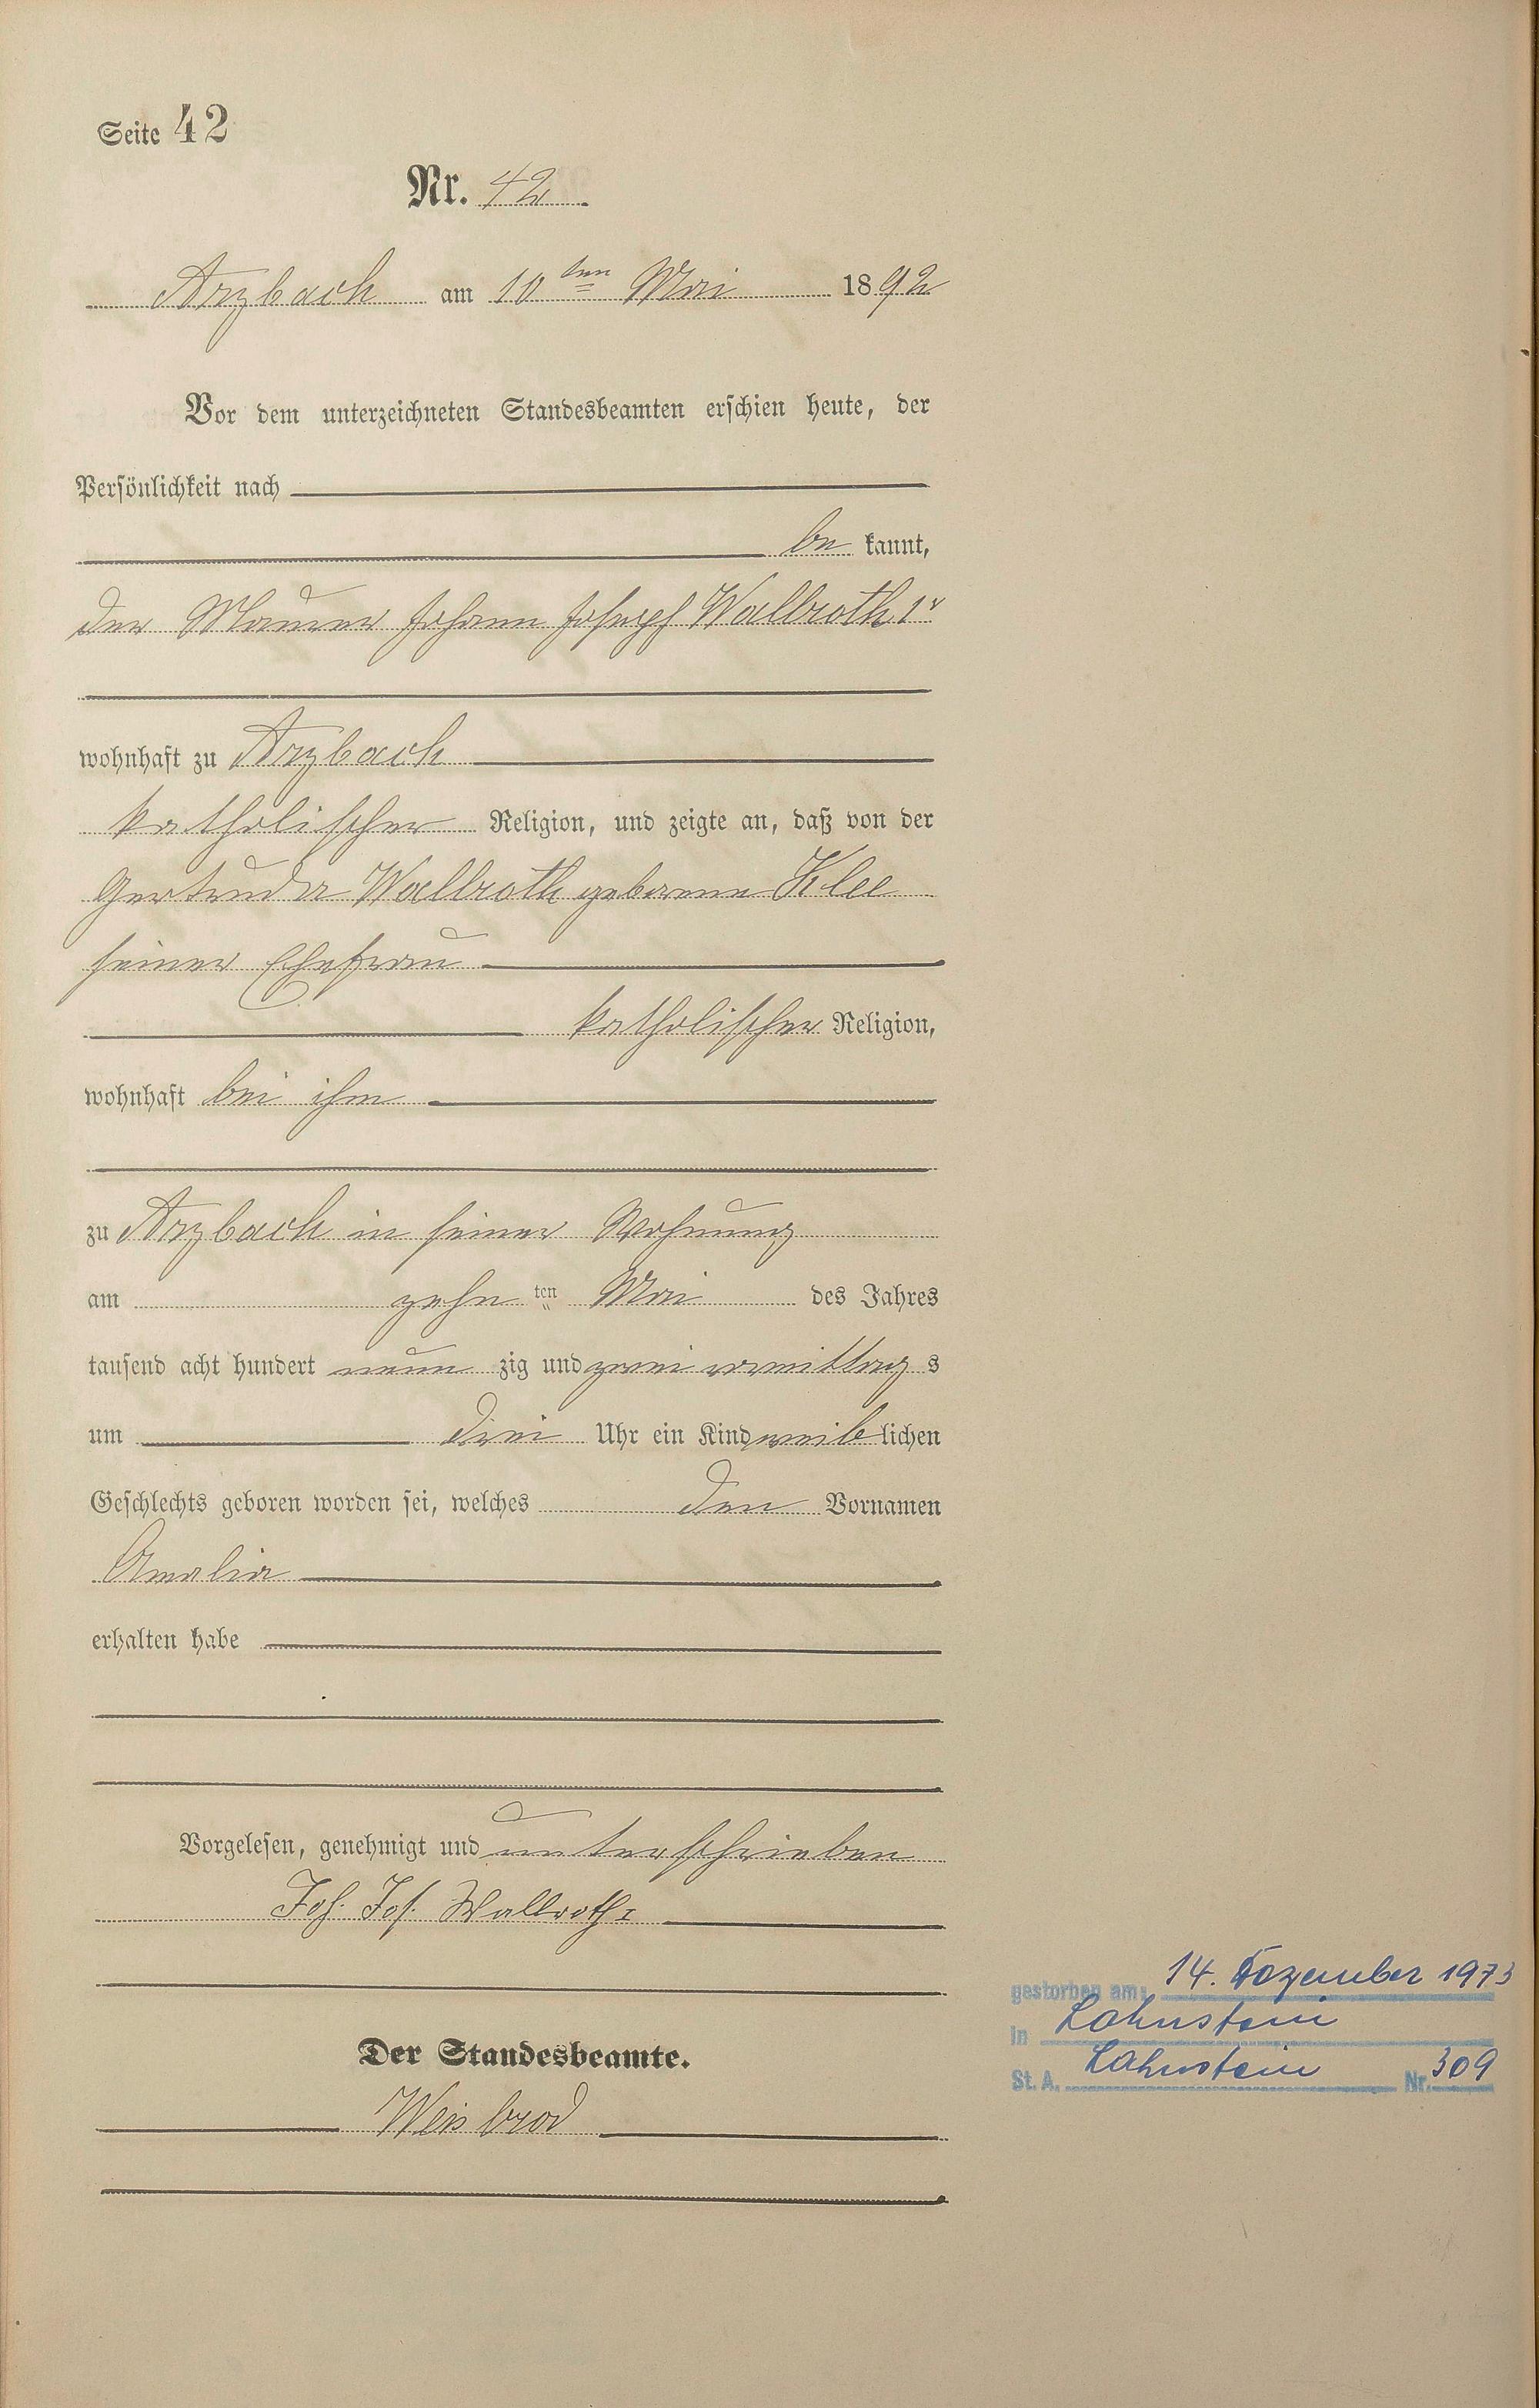 Seite 42
Nr. 42.
Arzbach am 10ten Mai 1892
Vor dem unterzeichneten Standesbeamten erschien heute, der
Persönlichkeit nach
be kannt,
der Maurer Johann Joseph Wallroth 1r
wohnhaft zu Arzbach
katholischer Religion, und zeigte an, daß von der
Gertruda Wallroth geborene Klee
seiner Ehefrau
katholischer Religion,
wohnhaft bei ihm
zu Arzbach in seiner Wohnung
am zehn ten Mai des Jahres
tausend acht hundert neun zig und zwei vormittag s
um drei Uhr ein Kind weib lichen
Geschlechts geboren worden sei, welches den Vornamen
Amalia
erhalten habe
Vorgelesen, genehmigt und unterschrieben
Joh. Jos. Wallroth I
Der Standesbeamte.
Weisbrod
gestorben am: 14. Dezember 1973
in Lahnstein
St. A. Lahnstein Nr. 309